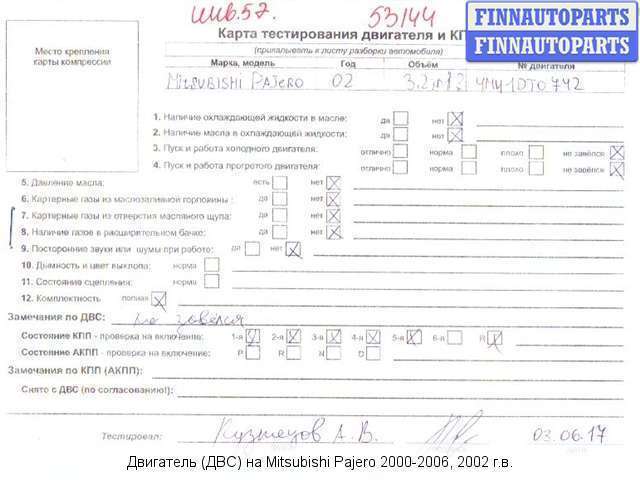 инв.57.
53144
FINNAUTOPARTS
FINNAUTOPARTS
Место крепления
карты компрессии
Карта тестирования двигателя и КП
(прикалывать к листу разборки автомобиля)
Марка, модель Год Объём № двигателя
Mitsubishi PAJERO 02 3.2
1. Наличие охлаждающей жидкости в масле: да нет
2. Наличие масла в охлаждающей жидкости: да нет
3. Пуск и работа холодного двигателя: отлично норма плохо не завёлся
4. Пуск и работа прогретого двигателя: отлично норма плохо не завёлся
5. Давление масла: есть нет
6. Картерные газы из маслозаливной горловины: да нет
7. Картерные газы из отверстия масляного щупа: да нет
8. Наличие газов в расширительном бачке: да нет
9. Посторонние звуки или шумы при работе: да нет
10. Дымность и цвет выхлопа: норма
11. Состояние сцепления: норма
12. Комплектность полная
Замечания по ДВС: не завелся
Состояние КПП - проверка на включение: 1-я 2-я 3-я 4-я 5-я 6-я R
Состояние АКПП - проверка на включение: P R N D
Замечания по КПП (АКПП):
Снято с ДВС (по согласованию!):
Тестировал: Кузнецов А.В. 03.06.17
Двигатель (ДВС) на Mitsubishi Pajero 2000-2006, 2002 г.в.